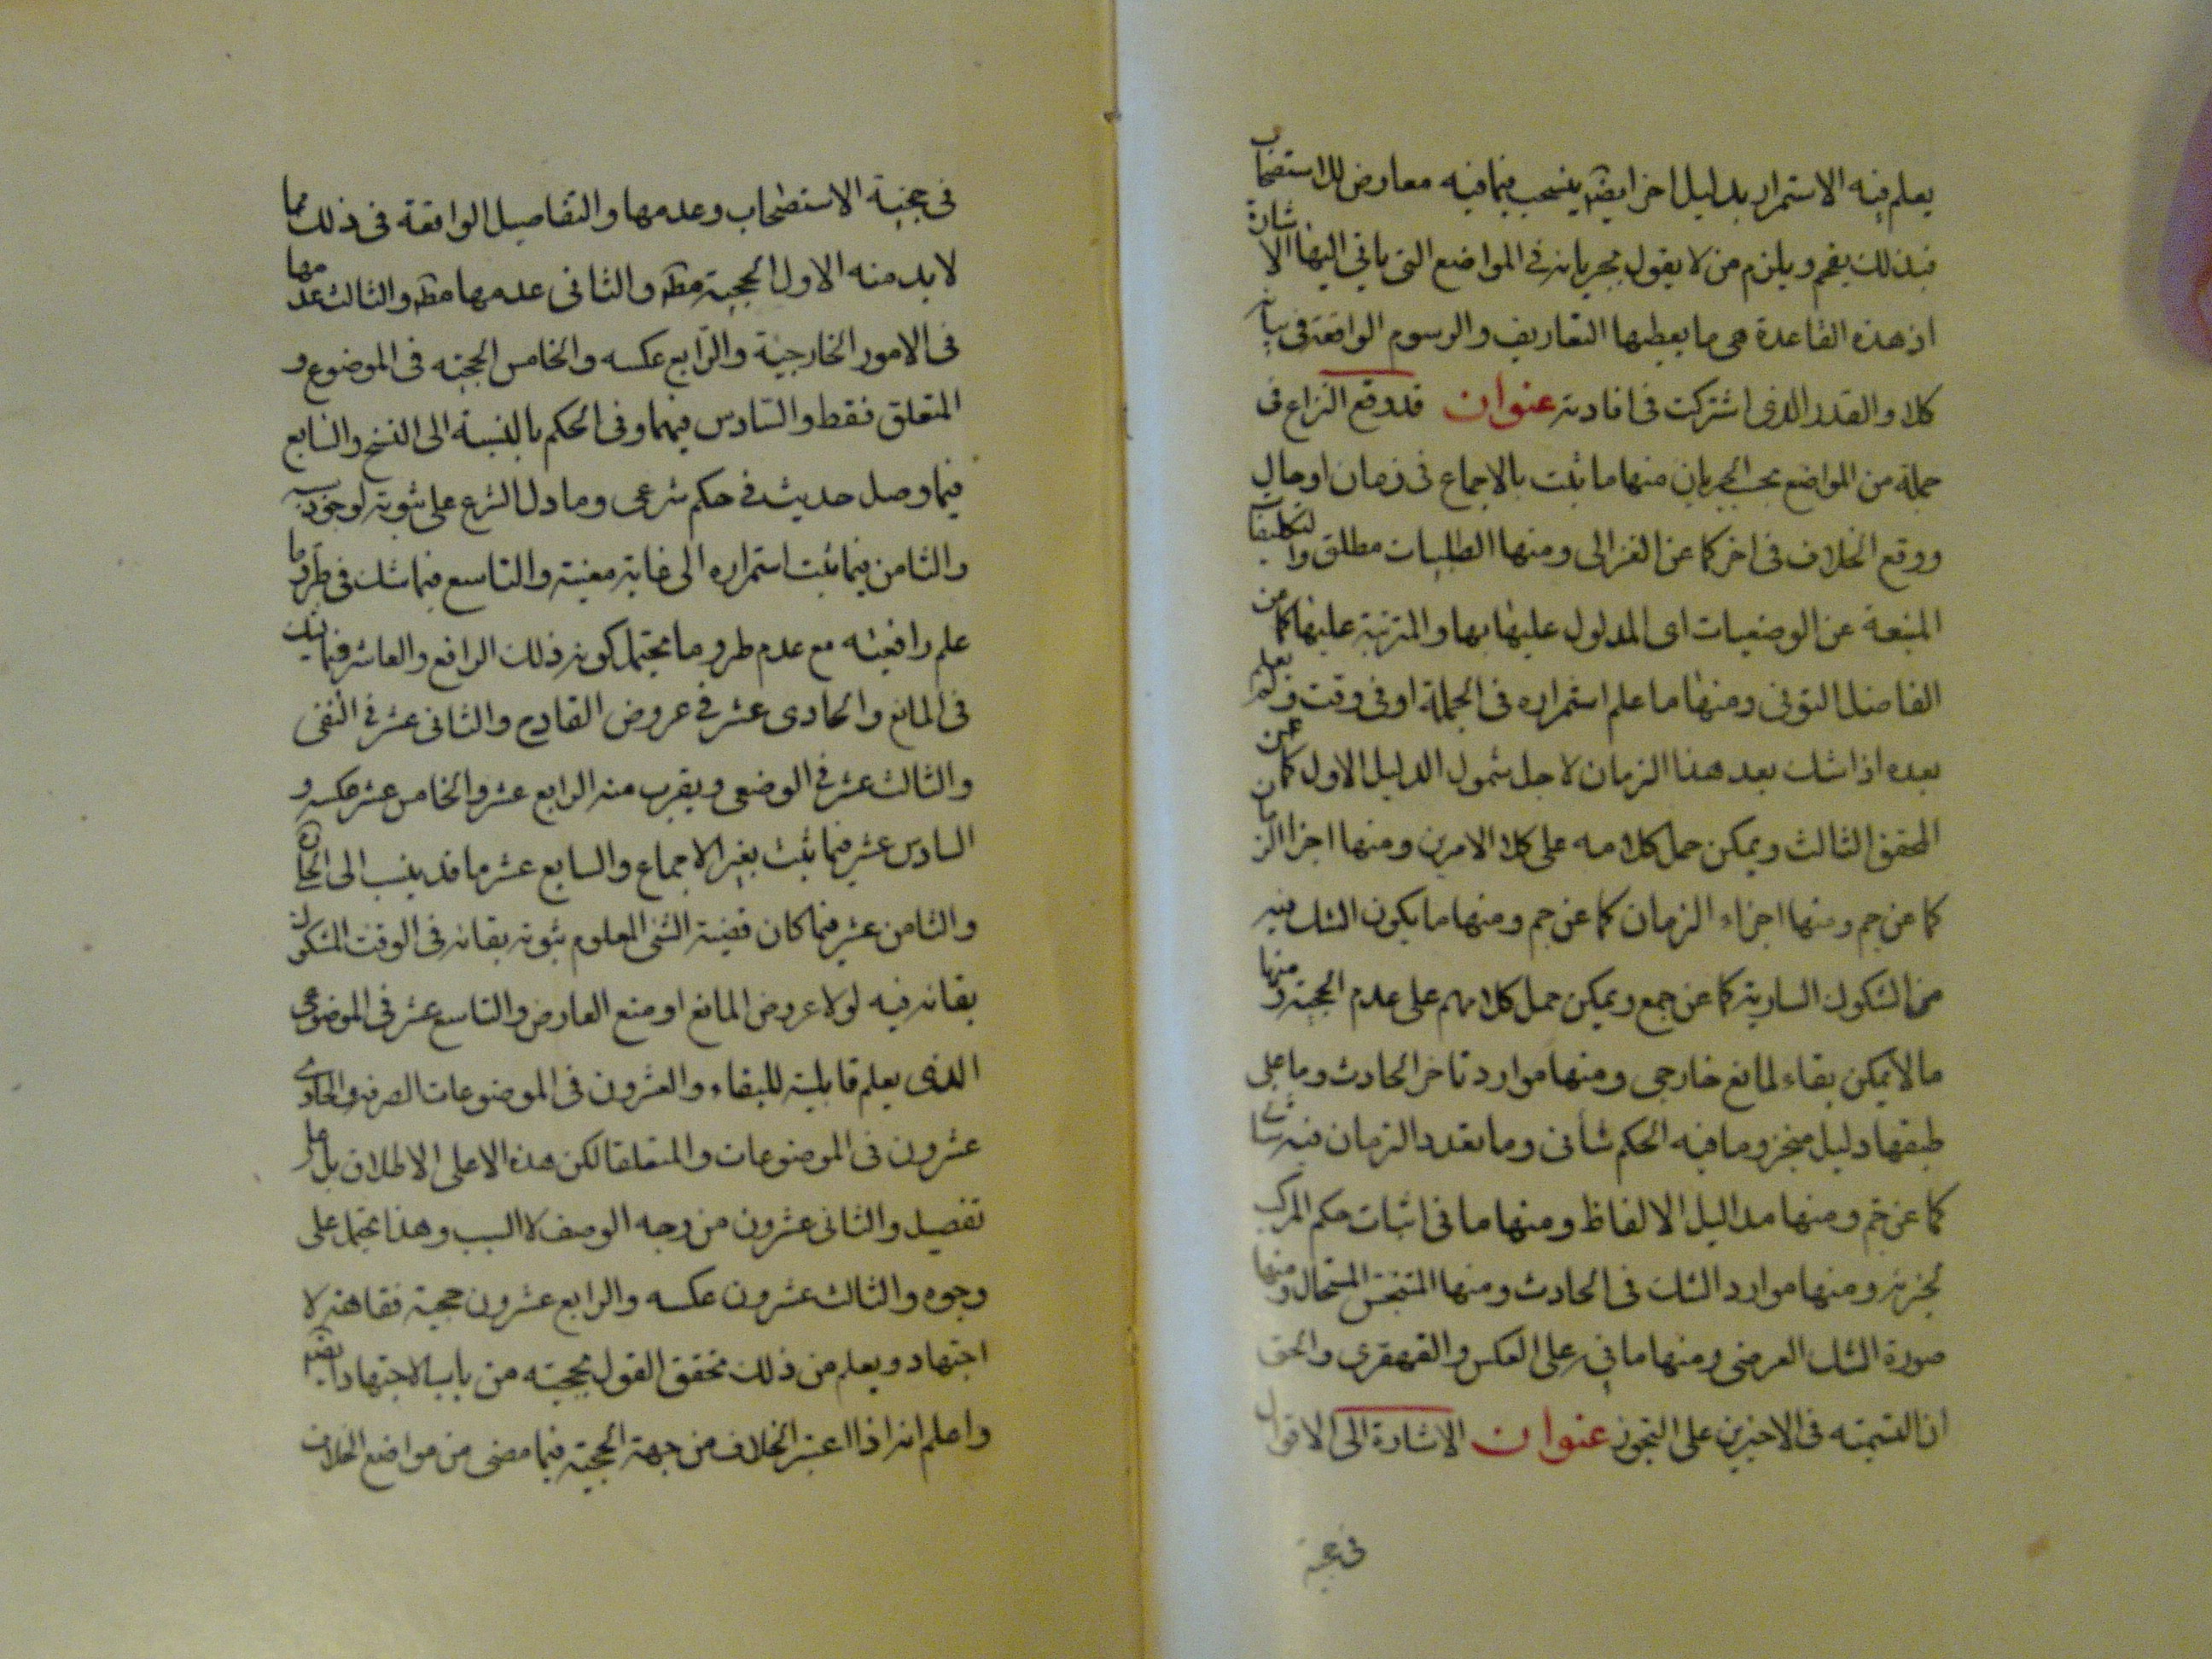 يعلم فيه الاستمرار بدليل اخر ايضا ينسحب فيما فيه معارض للاستصحاب
فبذلك يفحم ويلزم من لا يقول بجريانه في المواضع التي ياتي اليها الاشارة
اذ هذه القاعدة هي ما يعطيها التعاريف والرسوم الواقعة في بيانه
كلا والقدر الذي اشتركت في افادته عنوان قد وقع النزاع في
جملة من المواضع بحسب الجريان منها ما ثبت بالاجماع في زمان او حال
ووقع الخلاف في اخر كما عن الغزالي ومنها الطلبيات مطلق والتكليفات
المنبعة عن الوضعيات اى المدلول عليها بها والمترتبة عليها كما من
الفاضل التوني ومنها ما علم استمراره في الجملة او في وقت ولم يعلم
بعده اذا شك بعد هذا الزمان لاجل شمول الدليل الاول كما عن
المحقق الثالث ويمكن حمل كلامه على كلا الامرين ومنها اجزا الزمان
كما عن جم ومنها اجزاء الزمان كما عن جم ومنها ما يكون الشك فيه
من الشكوك السارية كما عن جمع ويمكن حمل كلامهم على عدم الحجية ومنها
ما لا يمكن بقاء لمانع خارجي ومنها موارد تاخر الحادث وما على
طبقها دليل منجز وما فيه الحكم شأنى وما تعدد الزمان فيه
كما عن جم ومنها مداليل الالفاظ ومنها ما في اثبات حكم المركب
لجزئه ومنها موارد الشك في الحادث ومنها المتنجس المستحال ومنها
صورة الشك العرضى ومنها ما في على العكس والقهقرى والحق
ان التسمية في الاخيرين على التجوز عنوان الاشارة الى الاقوال
في حجية
في حجية الاستصحاب وعدمها والتفاصيل الواقعة في ذلك مما
لا بد منه الاول الحجية مط والثاني عدمها مط والثالث عدمها
في الامور الخارجية والرابع عكسه والخامس الحجية في الموضوع و
المتعلق فقط والسادس فيهما وفي الحكم بالنسبة الى النسخ والسابع
فيما وصل حديث في حكم شرعى وما دل الشرع على ثبوته لوجود سببه
والثامن فيما ثبت استمراره الى غاية معينة والتاسع فيما شك في طرو ما
علم رافعيته مع عدم طرو ما يحتمل كونه ذلك الرافع والعاشر فيما شك
في المانع والحادى عشر في عروض القادح والثاني عشر في النفى
والثالث عشر في الوضعى ويقرب منه الرابع عشر والخامس عشر عكسه و
السادس عشر فيما ثبت بغير الاجماع والسابع عشر ما قد ينسب الى
والثامن عشر فيما كان قضية الشئ المعلوم ثبوته بقائه في الوقت المشكوك
بقائه فيه لولا عروض المانع او منع العارض والتاسع عشر في الموضوعى
الذى يعلم قابليته للبقاء والعشرون في الموضوعات الصرفة والحادى
عشرون في الموضوعات والمتعلقا لكن هذه الاعلى الاطلاق بل على
تفصيل والثاني عشرون من وجه الوصف لا السبب وهذا يحتمل على
وجوه والثالث عشرون عكسه والرابع عشرون حجية فقاهة لا
اجتهاد ويعلم من ذلك تحقق القول بحجيته من باب الاجتهاد ايضا
واعلم انه اذا اعتبر الخلاف من جهة الحجية فيما مضى من مواضع الخلاف